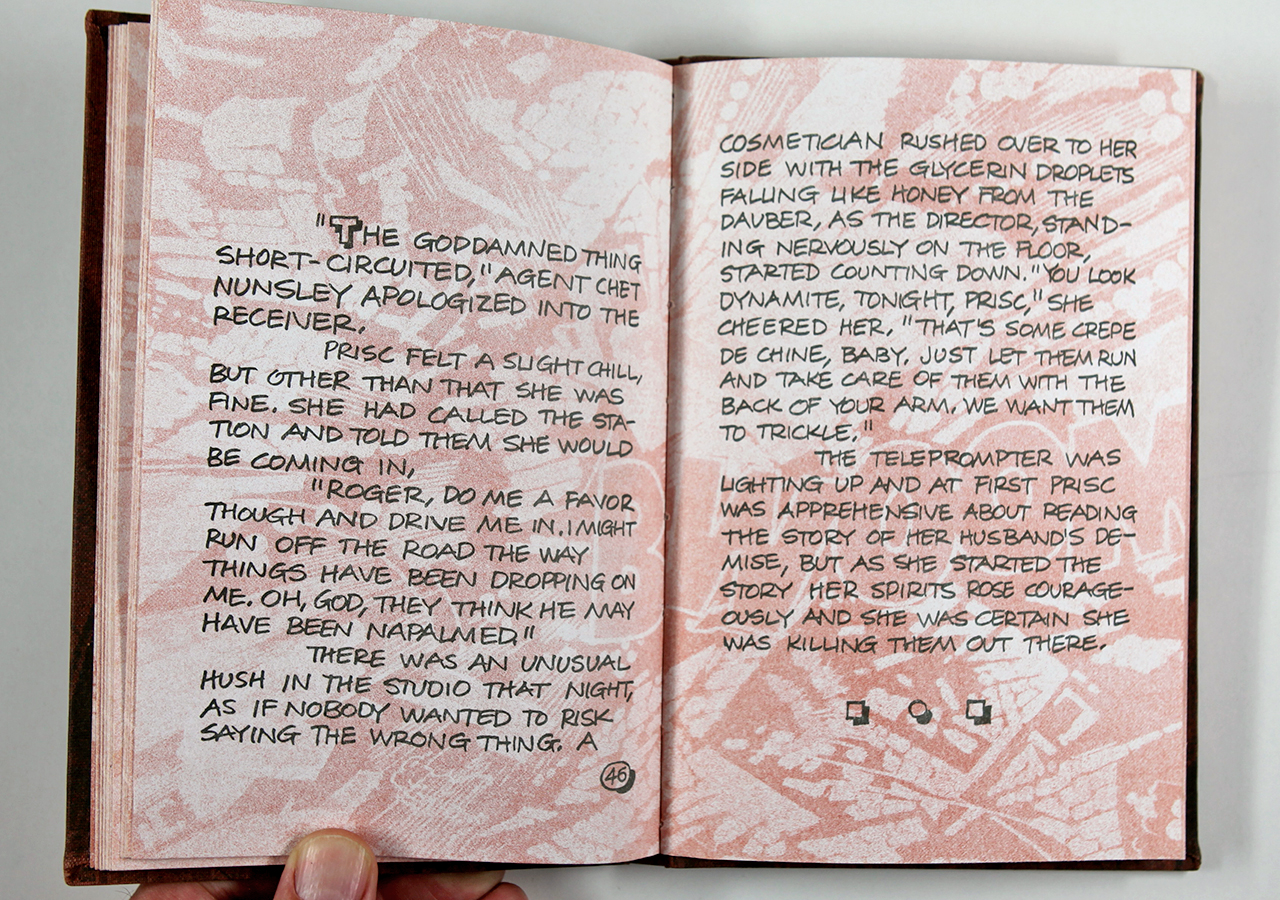 "THE GODDAMNED THING
SHORT-CIRCUITED," AGENT CHET
NUNSLEY APOLOGIZED INTO THE
RECEIVER.
PRISC FELT A SLIGHT CHILL,
BUT OTHER THAN THAT SHE WAS
FINE. SHE HAD CALLED THE STA-
TION AND TOLD THEM SHE WOULD
BE COMING IN,
"ROGER, DO ME A FAVOR
THOUGH AND DRIVE ME IN. I MIGHT
RUN OFF THE ROAD THE WAY
THINGS HAVE BEEN DROPPING ON
ME. OH, GOD, THEY THINK HE MAY
HAVE BEEN NAPALMED."
THERE WAS AN UNUSUAL
HUSH IN THE STUDIO THAT NIGHT,
AS IF NOBODY WANTED TO RISK
SAYING THE WRONG THING. A
46
COSMETICIAN RUSHED OVER TO HER
SIDE WITH THE GLYCERIN DROPLETS
FALLING LIKE HONEY FROM THE
DAUBER, AS THE DIRECTOR, STAND-
ING NERVOUSLY ON THE FLOOR,
STARTED COUNTING DOWN. "YOU LOOK
DYNAMITE, TONIGHT, PRISC," SHE
CHEERED HER. "THAT'S SOME CREPE
DE CHINE, BABY. JUST LET THEM RUN
AND TAKE CARE OF THEM WITH THE
BACK OF YOUR ARM. WE WANT THEM
TO TRICKLE."
THE TELEPROMPTER WAS
LIGHTING UP AND AT FIRST PRISC
WAS APPREHENSIVE ABOUT READING
THE STORY OF HER HUSBAND'S DE-
MISE, BUT AS SHE STARTED THE
STORY HER SPIRITS ROSE COURAGE-
OUSLY AND SHE WAS CERTAIN SHE
WAS KILLING THEM OUT THERE.